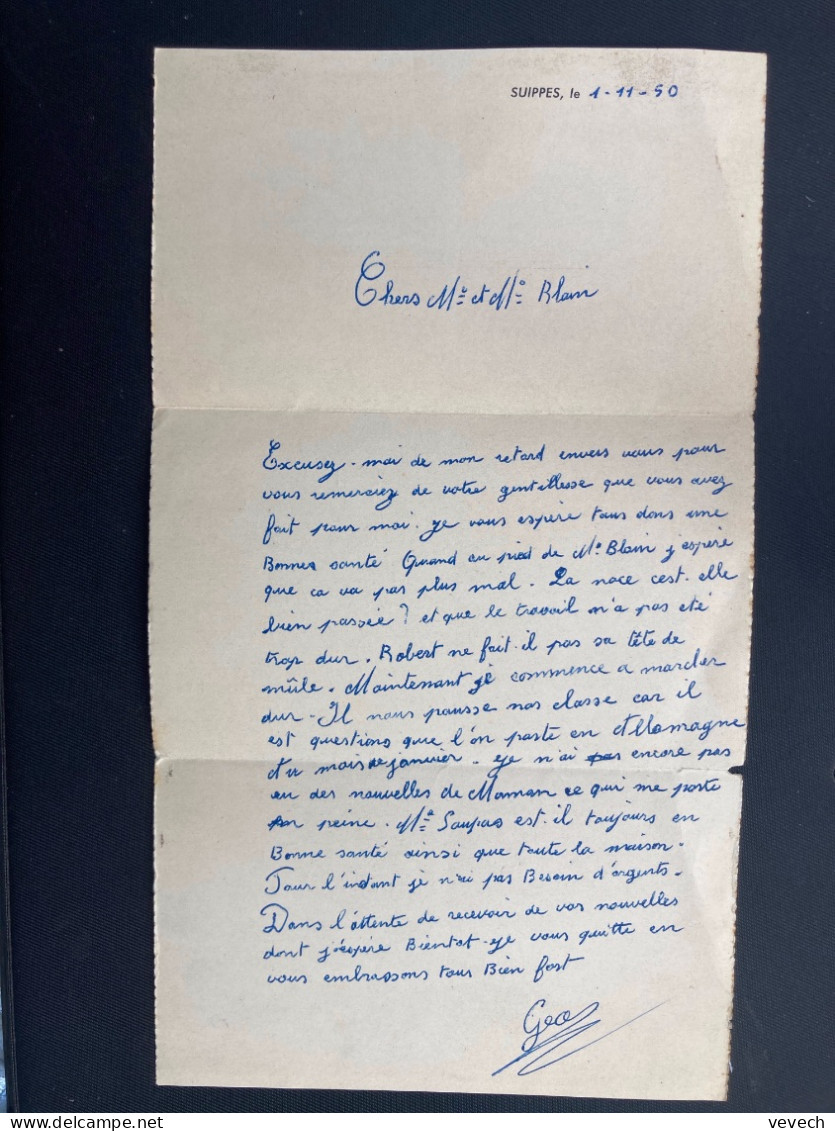 SUIPPES, le 1-11-50
Chers Mr et Me Blain
Excusez-moi de mon retard envers vous pour
vous remerciez de votre gentillesse que vous avez
fait pour moi. Je vous espère tous dans une
Bonnes santé Quand au pied de Me Blain j'espère
que ca va pas plus mal. La noce c'est-elle
bien passée? et que le travail n'a pas eté
trop dur. Robert ne fait-il pas sa tête de
mûle. Maintenant je commence a marcher
dur. Il nous pousse nos classe car il
est questions que l'on parte en Allemagne
Au mois de janvier. Je n'ai pas encore pas
eu des nouvelles de Maman ce qui me porte
peine. Mr Saupas est-il toujours en
Bonne santé ainsi que toute la maison.
Pour l'instant je n'ai pas Besoin d'argents.
Dans l'attente de recevoir de vos nouvelles
dont j'éspère Bientot. Je vous quitte en
vous embrassons tous Bien fort
Geo
vevech